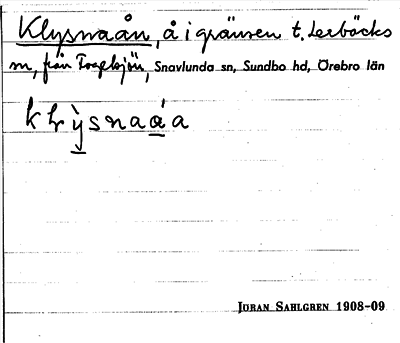 Klysnaån, å i gränsen t. Lerbäcks
sn, från Fagertjärn, Snavlunda sn, Sundbo hd, Örebro län
Jöran Sahlgren 1908-09